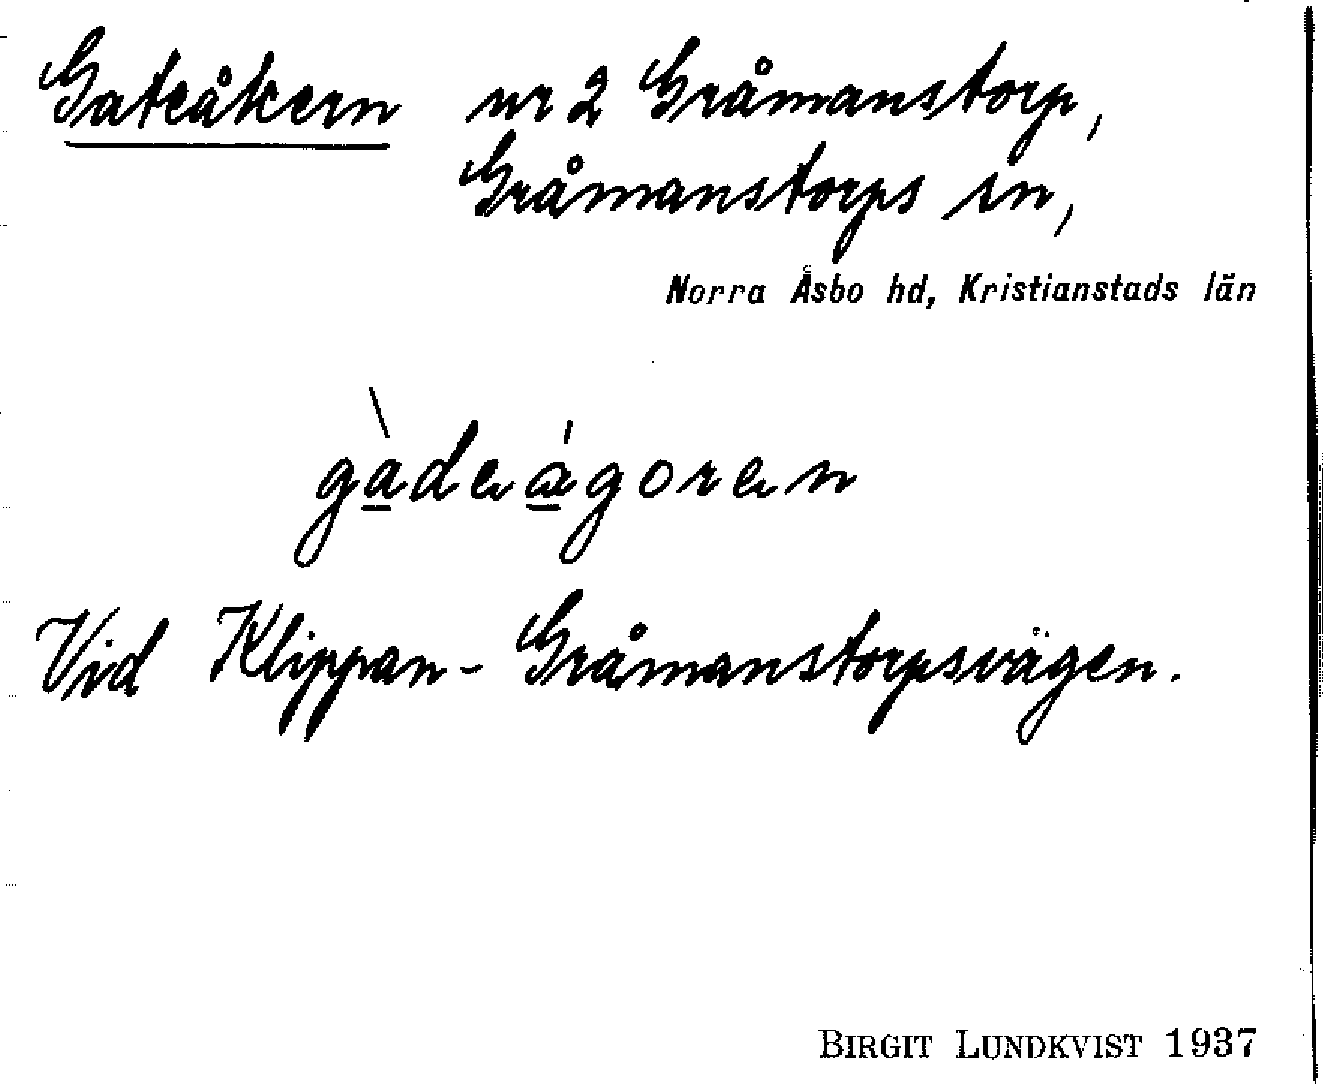 Gateåkern nr 2 Gråmanstorp,
Gråmanstorps sn,
Norra Åsbo hd, Kristianstads län
gàdeágoren
Vid Klippan-Gråmanstorpsvägen.
BIRGIT LUNDKVIST 1937